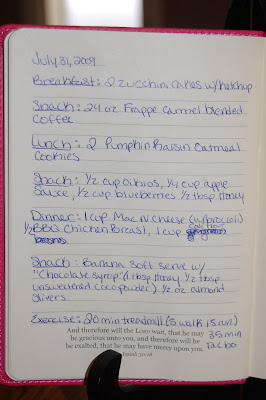 July 31, 2009
Breakfast: 2 zucchini cakes w/ketchup
Snack: 24 oz Frappe Carmel blended
coffee
Lunch: 2 Pumpkin Raisin Oatmeal
Cookies
Snack: 1/2 cup Oikios, 1/4 cup apple
sauce, 1/2 cup blueberries 1/2 tbsp honey
Dinner: 1 cup Mac N Cheese (w/broccoli)
1/2 BBQ Chicken Breast, 1 cup
Snack: Banana Soft serve w/
"Chocolate syrup" (1 tbsp honey 1/2 tbsp
unsweetened coco powder) 1/2 oz almond
slivers
Exercise: 20 min treadmill (5 walk 15 run)
35 min
Tae bo
And therefore will the LORD wait, that he may
be gracious unto you, and therefore will he
be exalted, that he may have mercy upon you.
Isaiah 30:18